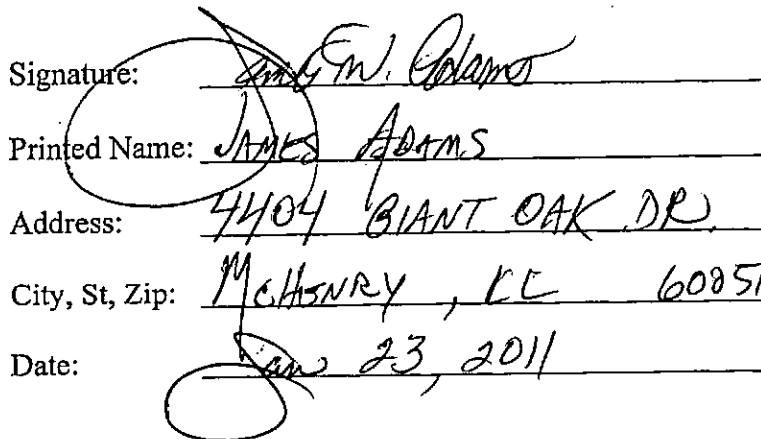 Signature: James W. Adams
Printed Name: JAMES ADAMS
Address: 4404 GIANT OAK DR.
City, St, Zip: McHENRY, IL 6005
Date: Jan 23, 2011